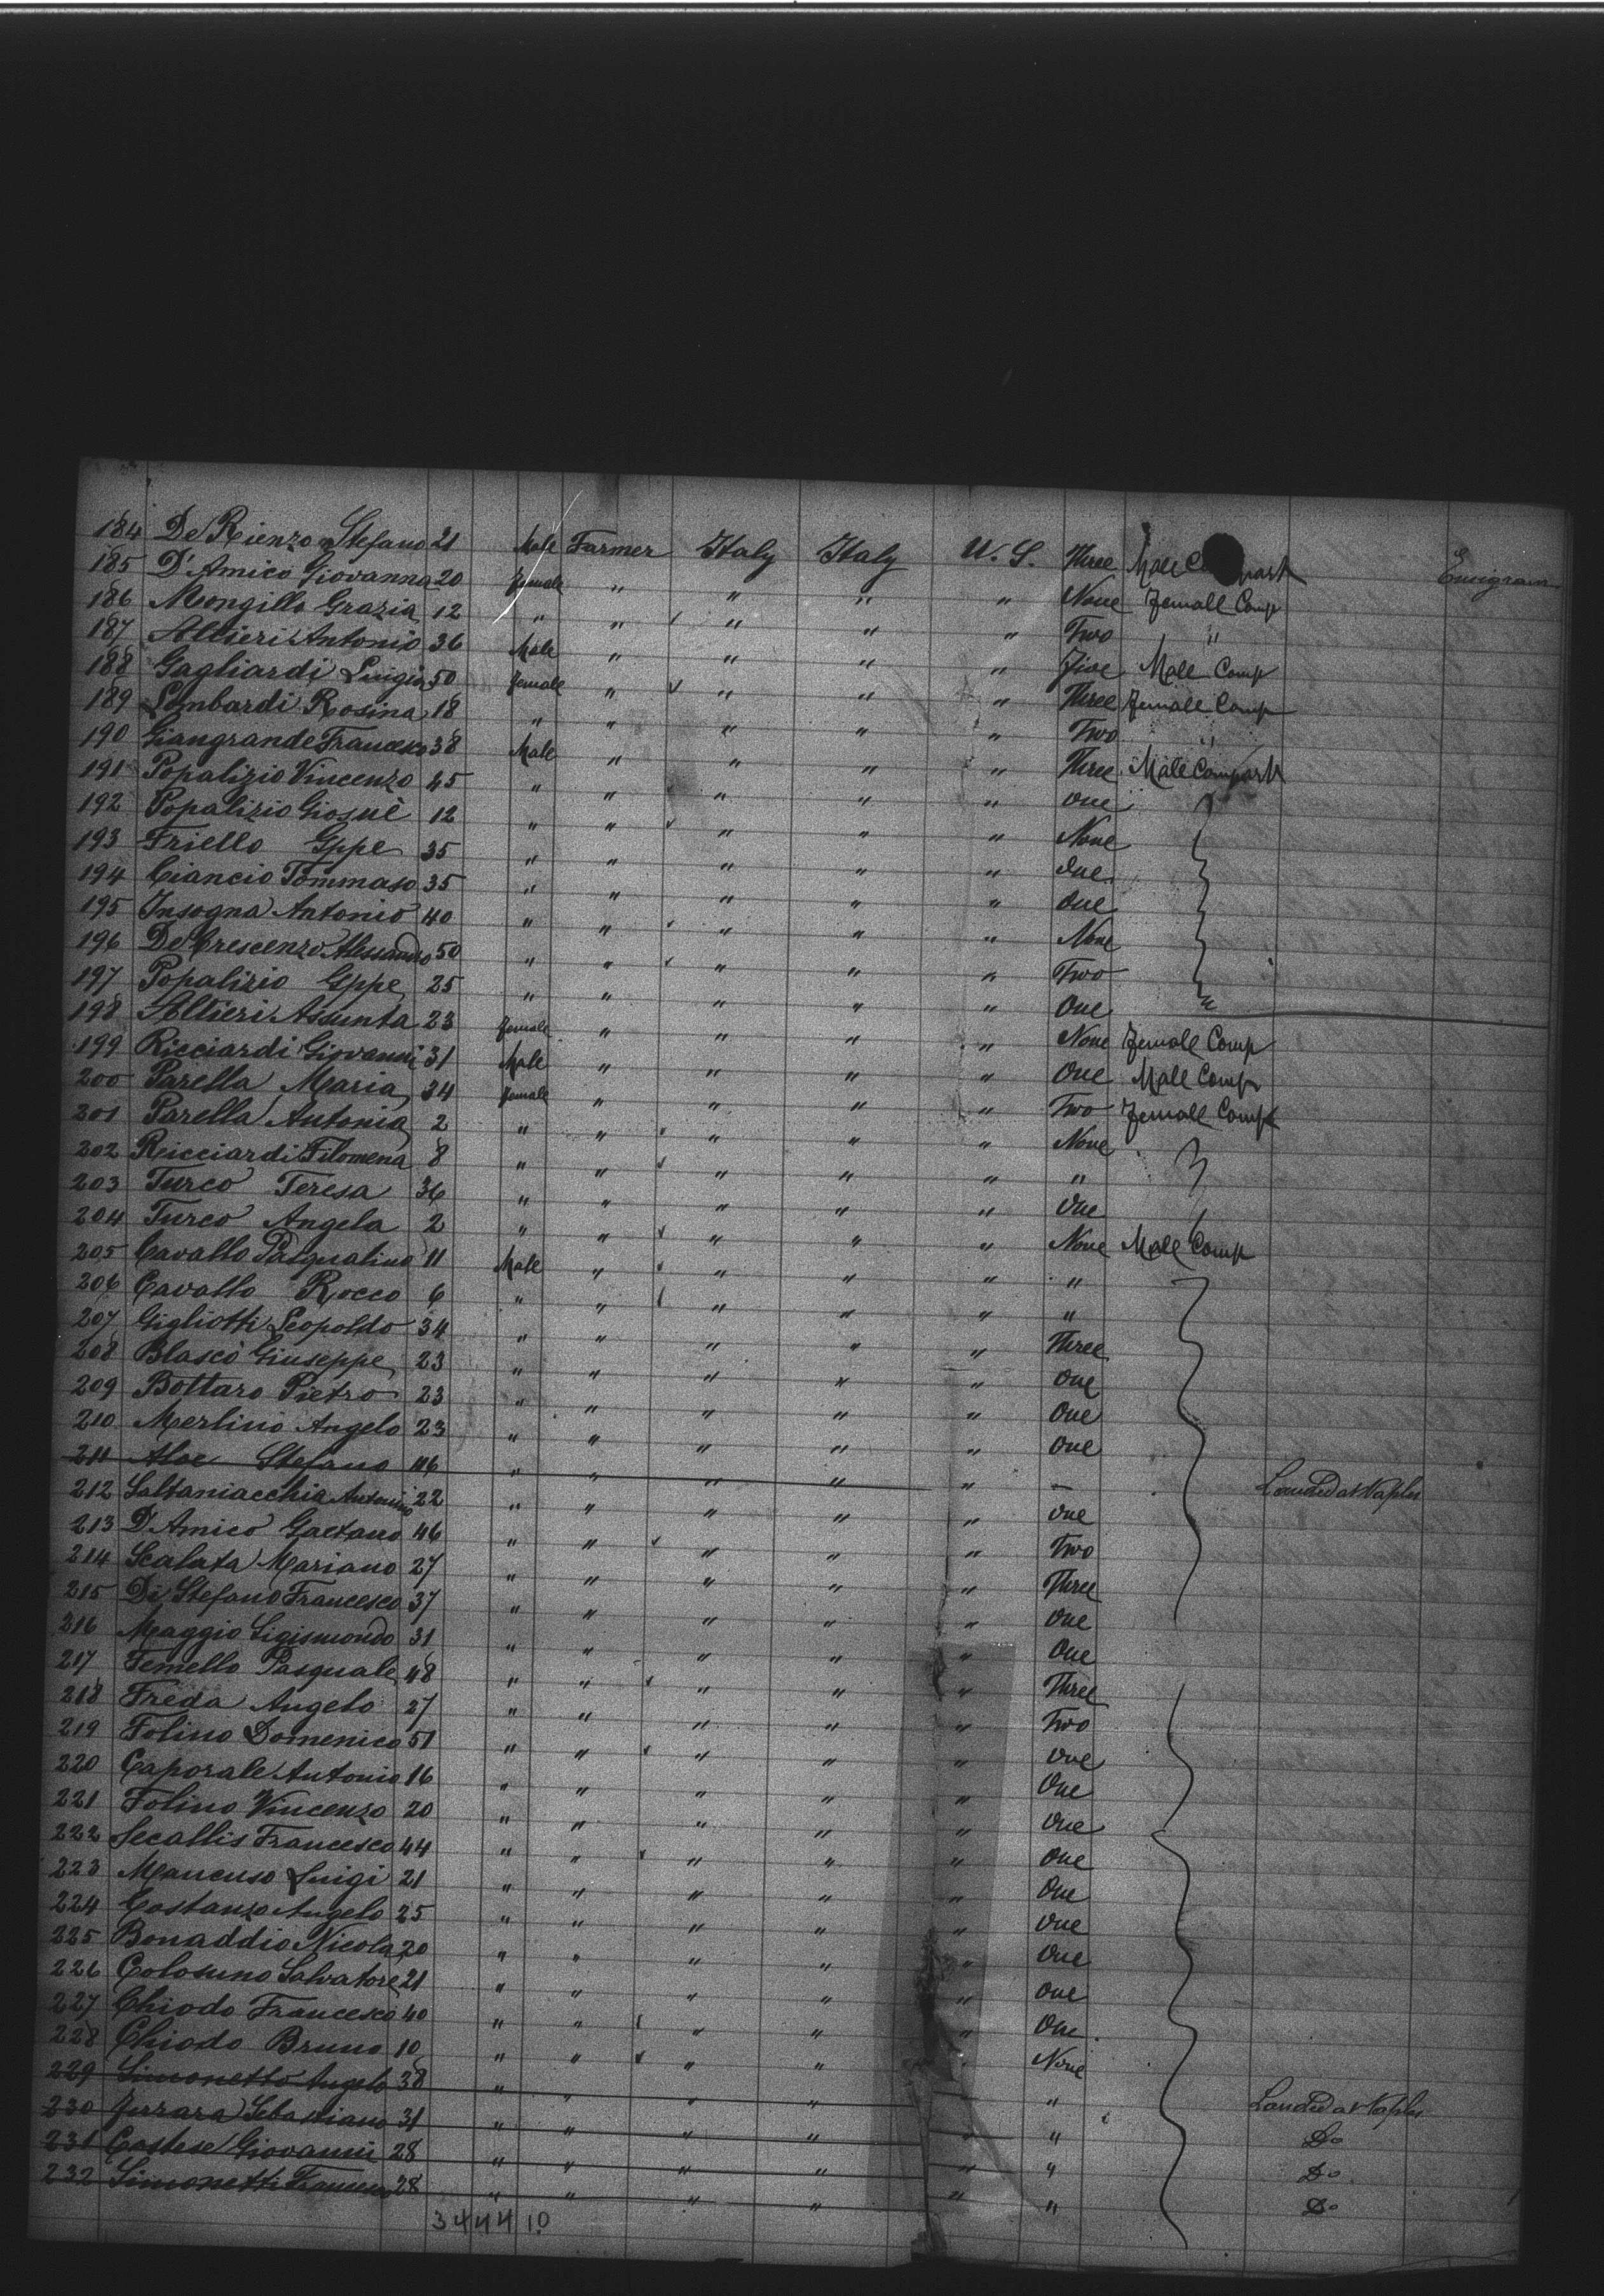 184 De Rienzo Stefano 21 Male Farmer Italy Italy U. S. Three Male Emigran
185 D'Amico Giovanna 20 Female " " " " None Female Comp
186 Mongillo Grazia 12 " " " " " Two "
187 Altieri Antonio 36 Male " " " " Five Male Comp
188 Gagliardi Luigia 50 Female " " " " Three Female Comp
189 Lombardi Rosina 18 " " " " " Two "
190 Giangrande Francesco 38 Male " " " " Three Male Compart
191 Popalizio Vincenzo 45 " " " " " One
192 Popalizio Giosuè 12 " " " " " None
193 Friello Gppe 35 " " " " " One
194 Ciancio Tommaso 35 " " " " " One
195 Insogna Antonio 40 " " " " " None
196 De Crescenzo Alessandro 50 " " " " " Two
197 Popalizio Gppe 25 " " " " " One
198 Altieri Assunta 23 Female " " " " None Female Comp
199 Ricciardi Giovanni 31 Male " " " " One Male Comp
200 Parella Maria 34 Female " " " " Two Female Comp
201 Parella Antonia 2 " " " " " None
202 Ricciardi Filomena 8 " " " " " "
203 Turco Teresa 36 " " " " " One
204 Turco Angela 2 " " " " " None Male Comp
205 Cavallo Pasqualino 11 Male " " " " "
206 Cavallo Rocco 6 " " " " " "
207 Gigliotti Leopoldo 34 " " " " " Three
208 Blasco Giuseppe 23 " " " " " One
209 Bottaro Pietro 23 " " " " " One
210 Merlino Angelo 23 " " " " " One
211 Aloe Stefano 46 " " " " " — Landed at Naples
212 Saltaniacchia Antonino 22 " " " " " One
213 D'Amico Gaetano 46 " " " " " Two
214 Scalata Mariano 27 " " " " " Three
215 Di Stefano Francesco 37 " " " " " One
216 Maggio Sigismondo 31 " " " " " One
217 Femello Pasquale 48 " " " " " Three
218 Freda Angelo 27 " " " " " Two
219 Folino Domenico 51 " " " " " One
220 Caporale Antonio 16 " " " " " One
221 Folino Vincenzo 20 " " " " " One
222 Secallis Francesco 44 " " " " " One
223 Mancuso Luigi 21 " " " " " One
224 Costanzo Angelo 25 " " " " " One
225 Bonaddio Nicola 20 " " " " " One
226 Colosimo Salvatore 21 " " " " " One
227 Chiodo Francesco 40 " " " " " One
228 Chiodo Bruno 10 " " " " " None
229 Simonetto Angelo 38 " " " " " " Landed at Naples
230 Ferrara Sebastiano 31 " " " " " " Do
231 Giovanni 28 " " " " " " Do
232 Simonetti Francesco 28 " " " " " " Do
34 44 10